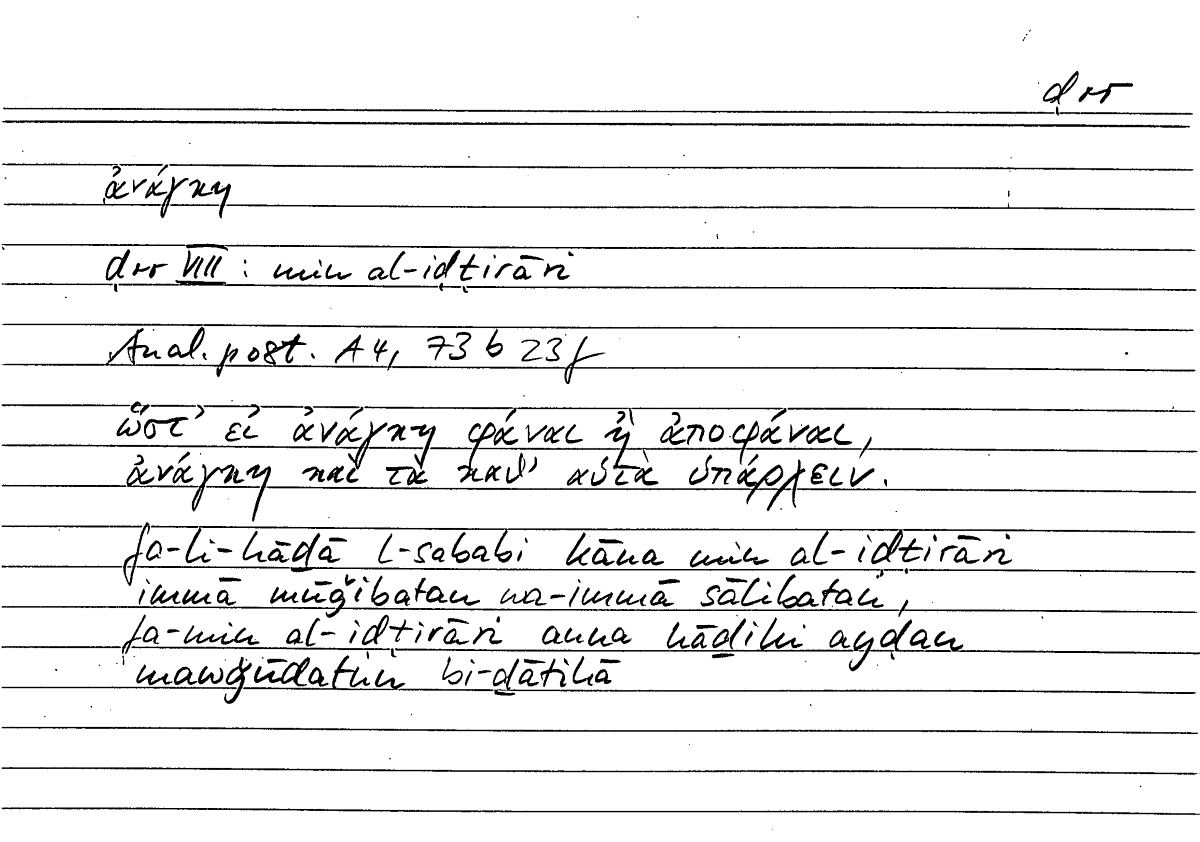 ḍrr
ἀνάγκη
ḍrr VIII : min al-iḍṭirāri
Anal. post. A 4, 73 b 23 f
ὥστ' εἰ ἀνάγκη φάναι ἢ ἀποφάναι,
ἀνάγκη καὶ τὰ καθ' αὑτὰ ὑπάρχειν.
fa-li-hāḏā l-sababi kāna min al-iḍṭirāri
immā mūǧibatan wa-immā sālibatan,
fa-min al-iḍṭirāri anna hāḏihi ayḍan
mawǧūdatun bi-ḏātihā